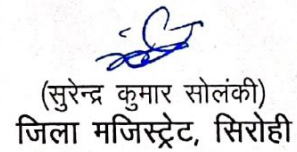 (सुरेन्द्र कुमार सोलंकी)
जिला मजिस्ट्रेट, सिरोही